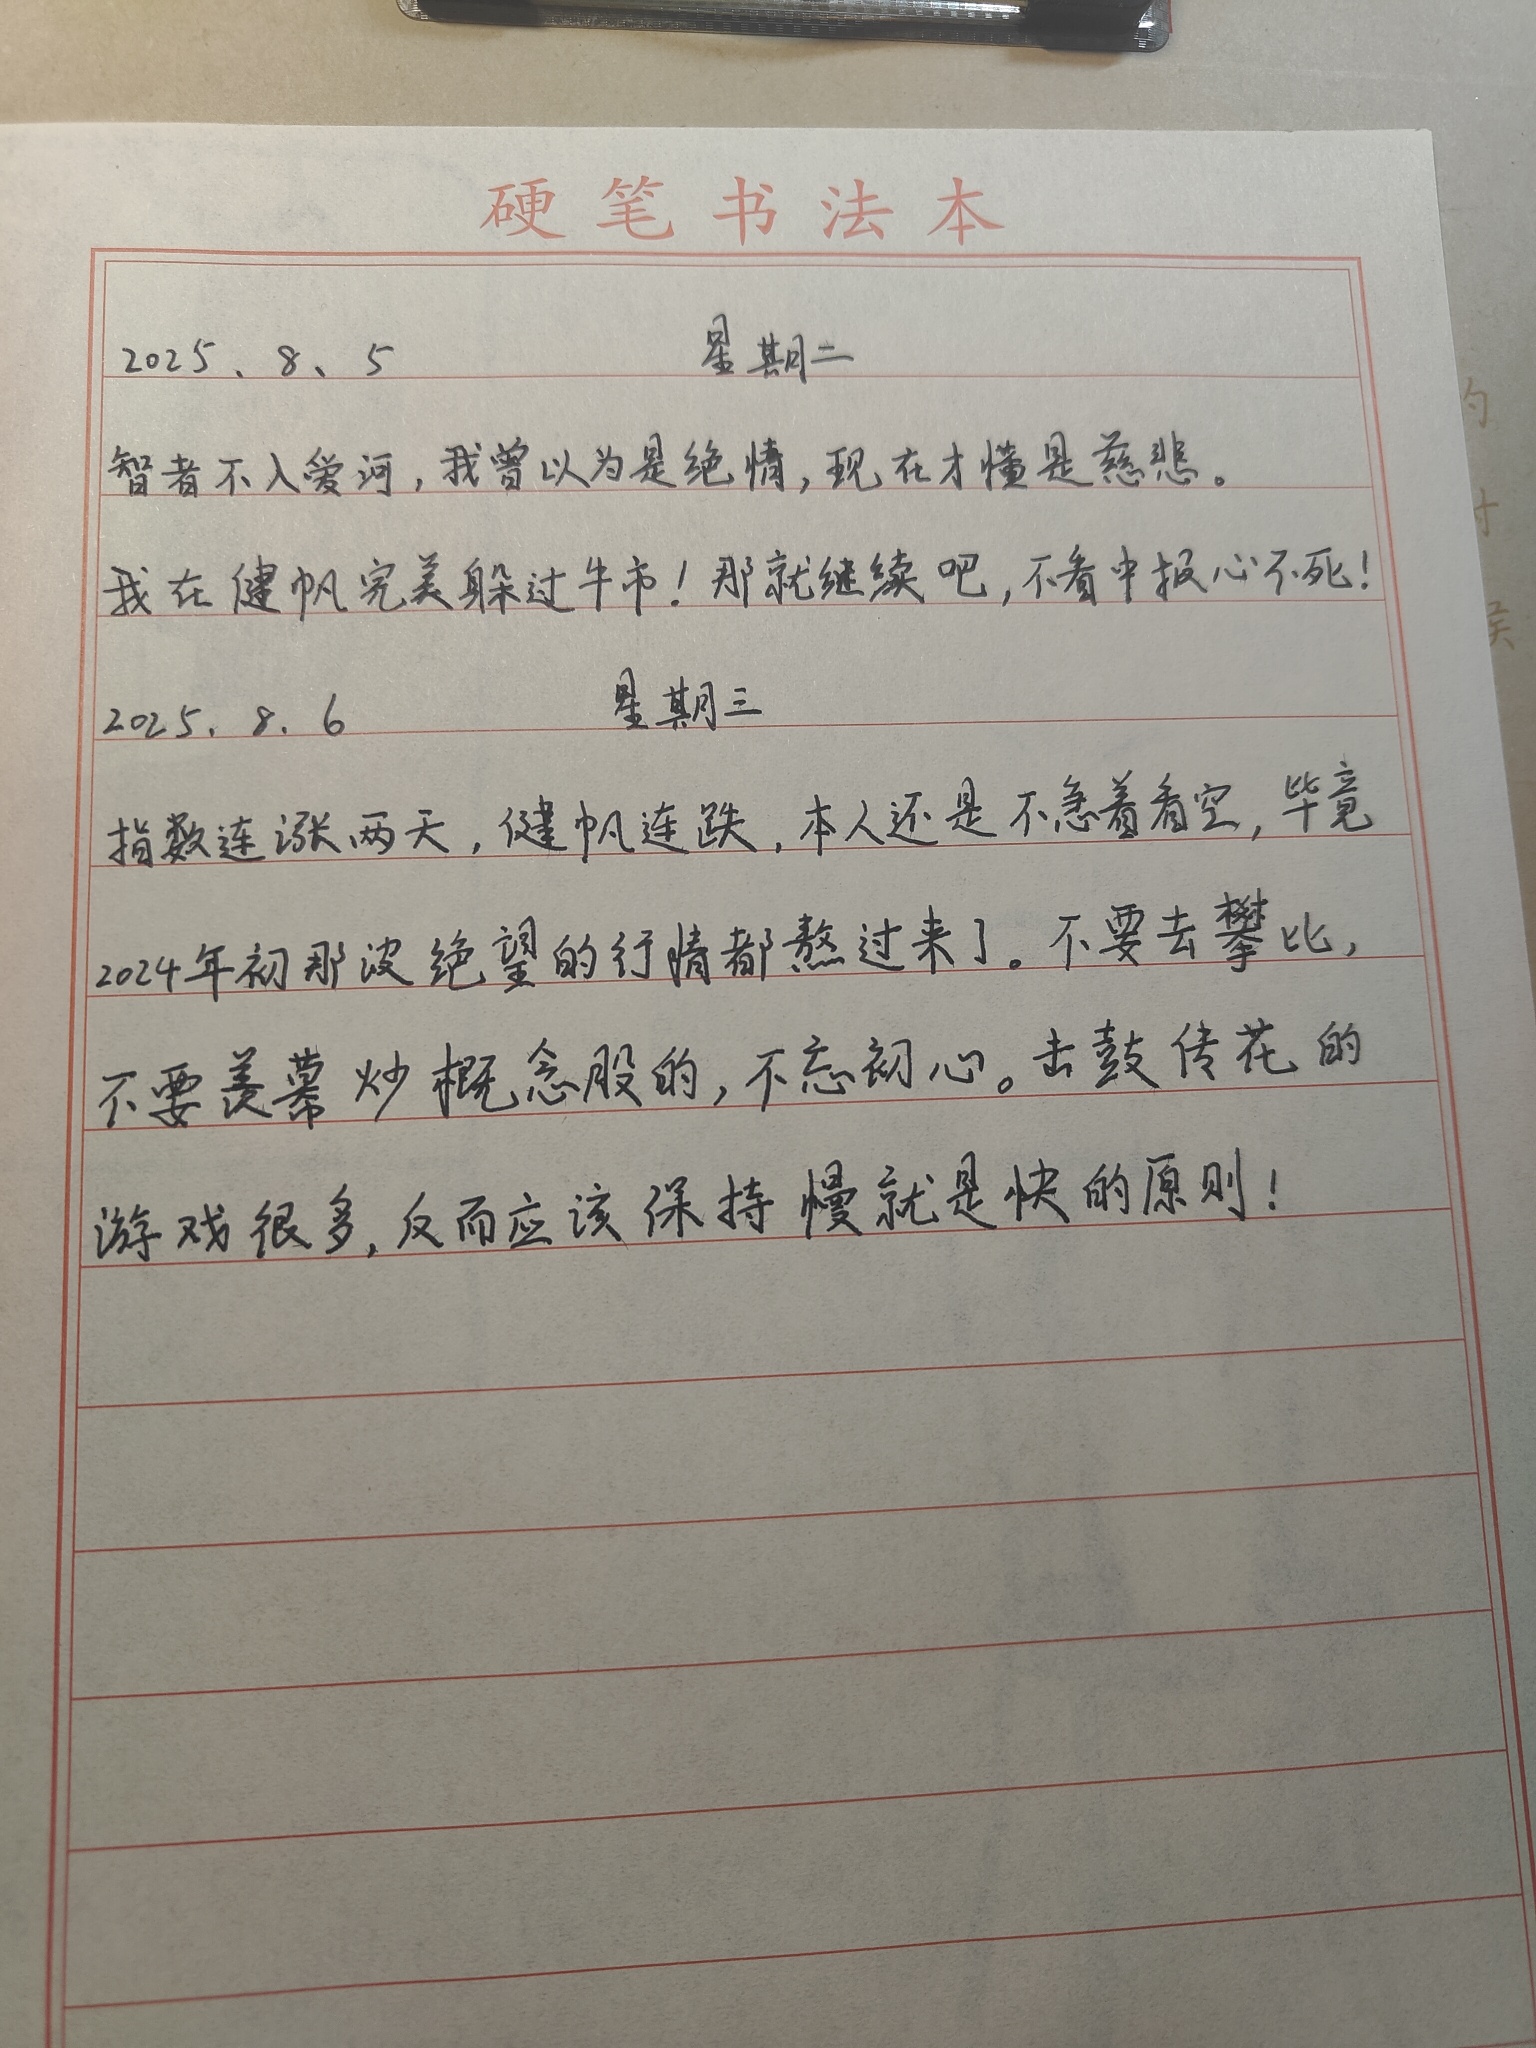 硬笔书法本
2025、8、5 星期二
智者不入爱河,我曾以为是绝情,现在才懂是慈悲。
我在健帆完美躲过牛市!那就继续吧,不看中报心不死!
2025.8.6 星期三
指数连涨两天,健帆连跌,本人还是不急着看空,毕竟
2024年初那波绝望的行情都熬过来了。不要去攀比,
不要羡慕炒概念股的,不忘初心。击鼓传花的
游戏很多,反而应该保持慢就是快的原则!